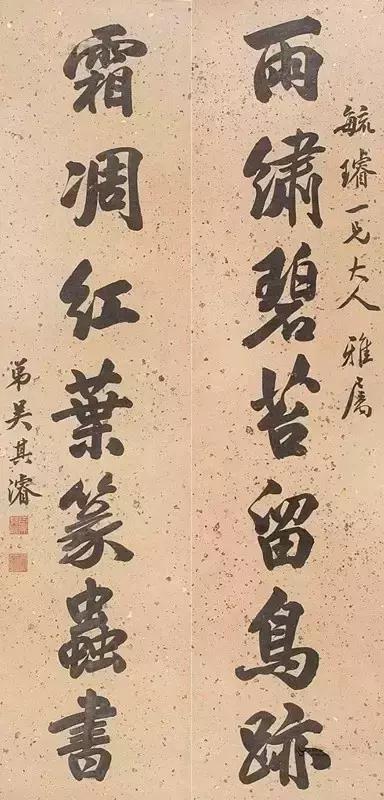 毓璿一兄大人雅屬
雨繡碧苔留鳥跡
霜凋紅葉篆蟲書
弟吴其濬